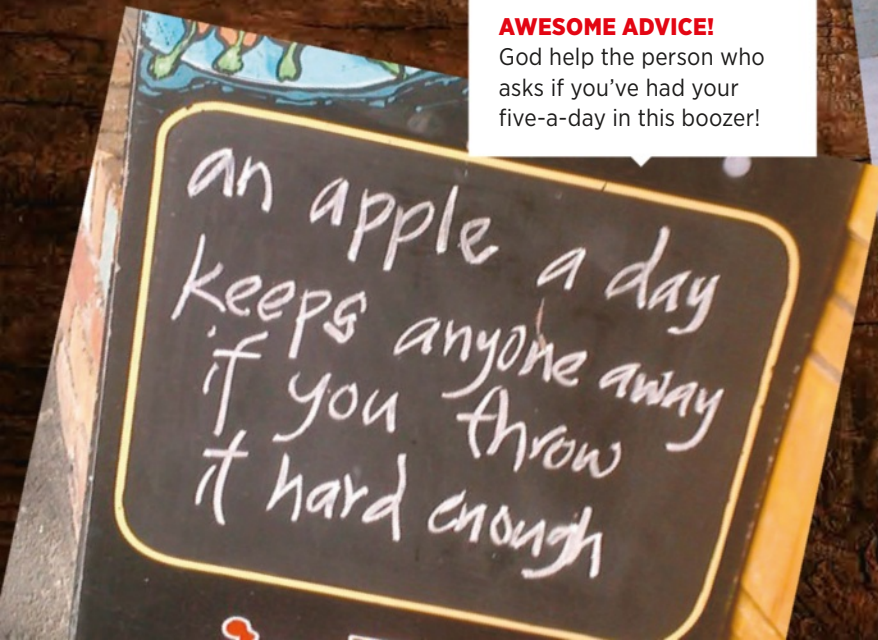 AWESOME ADVICE!
God help the person who
asks if you've had your
five-a-day in this boozer!
an apple a day
keeps anyone away
if you throw
it hard enough